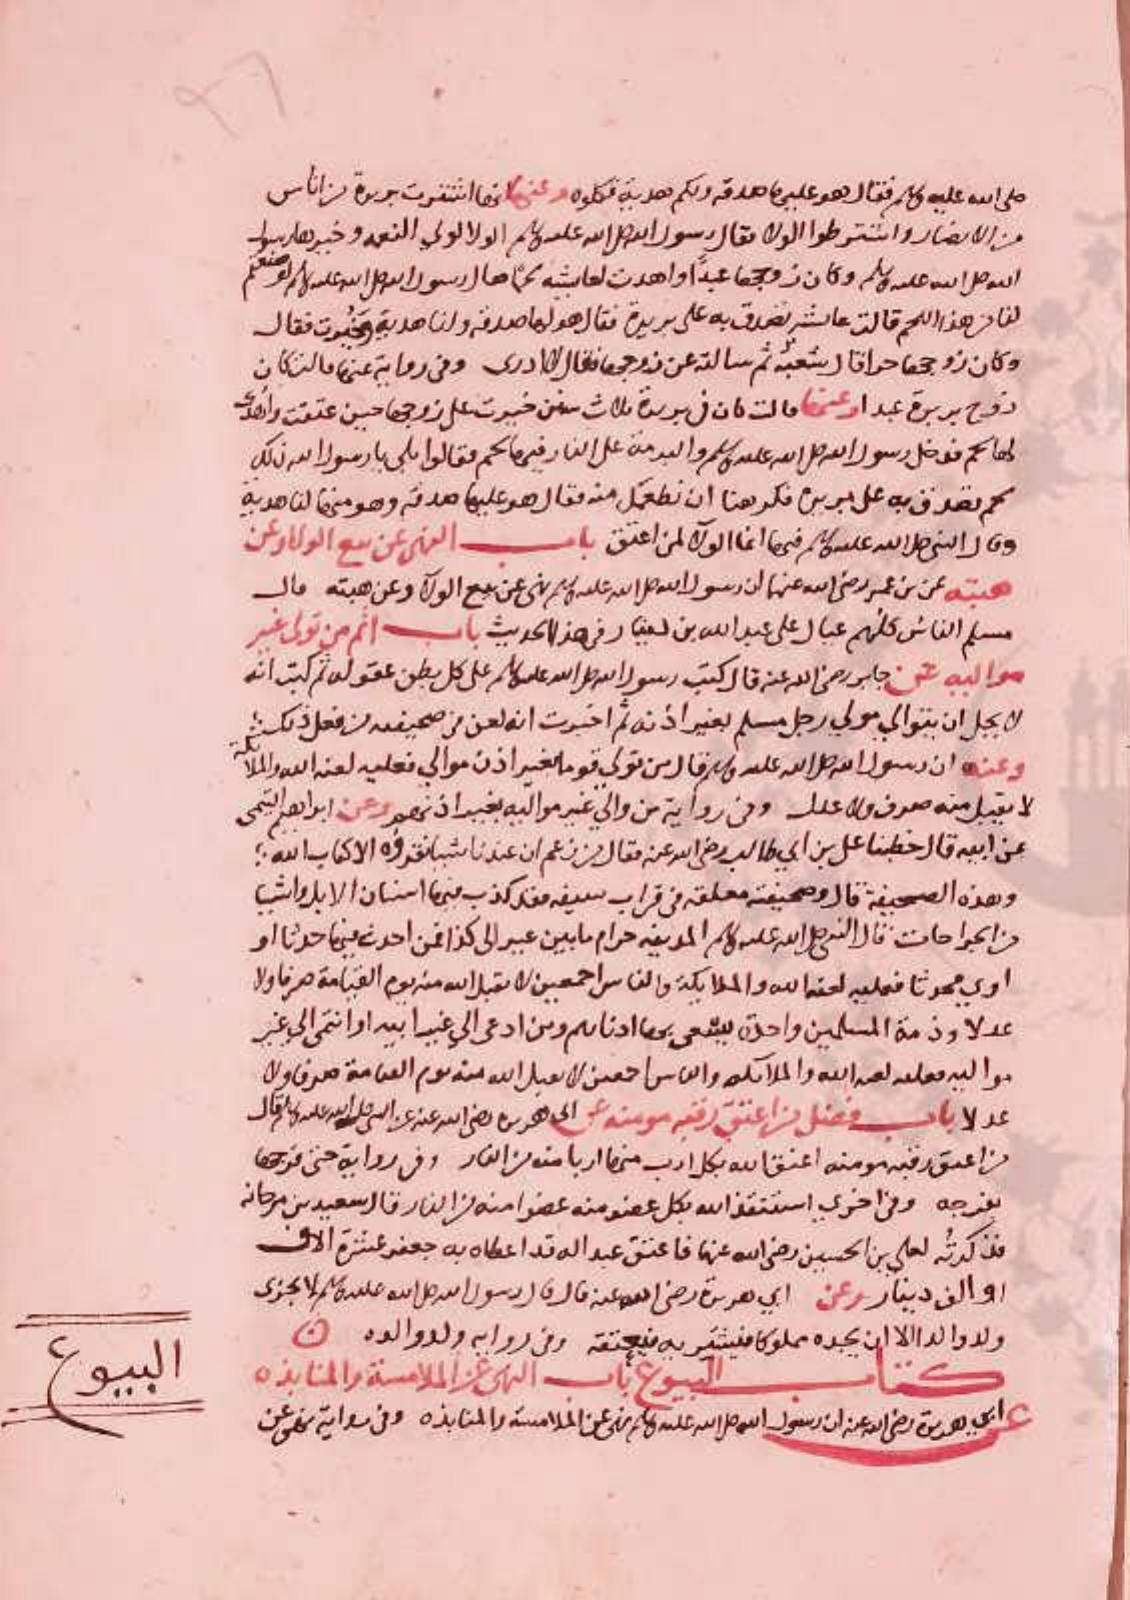 صلى الله عليه وسلم فقال هو عليها صدقه ولكم هدية فكلوه وعنها انها اشترت بريرة من اناس
من الانصار واشترطوا الولا فقال رسول الله صلى الله عليه وسلم الولا لولي النعمه وخيرها رسول
الله صلى الله عليه وسلم وكان زوجها عبدا واهدت لعايشه لحما فقال رسول الله صلى الله عليه وسلم لو صنعتم
لنا من هذا اللحم قالت عائشه تصدق به على بريرة فقال هو لها صدقه ولنا هدية وخيرت فقال
وكان زوجها حرا قال شعبه ثم سالته عن زوجها فقال لا ادرى وفى رواية عنها قالت كان
زوج بريرة عبدا وعنها قالت كان فى بريرة ثلاث سنن خيرت على زوجها حين عتقت واهدى
لها لحم فدخل رسول الله صلى الله عليه وسلم والبرمة على النار فقالوا بلى يا رسول الله ذلك
لحم تصدق به على بريرة فكرهنا ان نطعمك منه فقال هو عليها صدقة وهو منها لنا هدية
وقال النبى صلى الله عليه وسلم فيها انما الولا لمن اعتق باب النهى عن بيع الولا وعن
هبته عن بن عمر رضى الله عنهما ان رسول الله صلى الله عليه وسلم نهى عن بيع الولا وعن هبته قال
مسلم الناس كلهم عيال على عبد الله بن دينار فى هذا الحديث باب اثم من تولى غير
مواليه عن جابر رضى الله عنه قال كتب رسول الله صلى الله عليه وسلم على كل بطن عقوله ثم كتب انه
لا يحل ان يتوالي مولي رجل مسلم بغير اذنه ثم اخبرت انه لعن فى صحيفته من فعل ذلك
وعنه ان رسول الله صلى الله عليه وسلم قال من تولي قوما بغير اذن موالي فعليه لعنة الله والملائكة
لا يقبل منه صرف ولا عدل وفى رواية من والي غير مواليه بغير اذنهم وعن ابراهيم التيمى
عن ابيه قال خطبنا على بن ابي طالب رضى الله عنه فقال من زعم ان عندنا شيا نقرؤه الا كتاب الله
وهذه الصحيفة قال وصحيفته معلقه فى قراب سيفه فقد كذب فيها اسنان الابل واشيا
من الجراحات قال النبى صلى الله عليه وسلم المدينه حرام ما بين عير الى كذا فمن احدث فيها حدثا او
اوي محدثا فعليه لعنه الله والملايكة والناس اجمعين لا يقبل الله منه يوم القيامة صرفا ولا
عدلا وذمة المسلمين واحدة يسعى بها ادناهم ومن ادعى الي غير ابيه او انتمى الي غير
مواليه فعليه لعنه الله والملائكة والناس اجمعين لا يقبل الله منه يوم القيامة صرفا ولا
عدلا باب فضل من اعتق رقبه مومنه عن ابى هريرة رضى الله عنه عن النبى صلى الله عليه وسلم قال
من اعتق رقبه مومنه اعتق الله بكل ارب منها اربا منه من النار وفى رواية حتى فرجها
بفرجه وفى اخري استنقذ الله بكل عضو منه عضوا منه من النار قال سعيد بن مرجانه
فذكرته لعلي بن الحسين رضى الله عنهما فاعتق عبدا له قد اعطاه به جعفر عشرة الاف
او الف دينار وعن ابي هريرة رضى الله عنه قال قال رسول الله صلى الله عليه وسلم لا يجزى
ولد والدا الا ان يجده مملوكا فيشتريه فيعتقه وفى رواية ولد والده
كتاب البيوع باب النهى عن الملامسة والمنابذه
عن ابي هريرة رضى الله عنه ان رسول الله صلى الله عليه وسلم نهى عن الملامسة والمنابذه وفى رواية نهى عن
البيوع